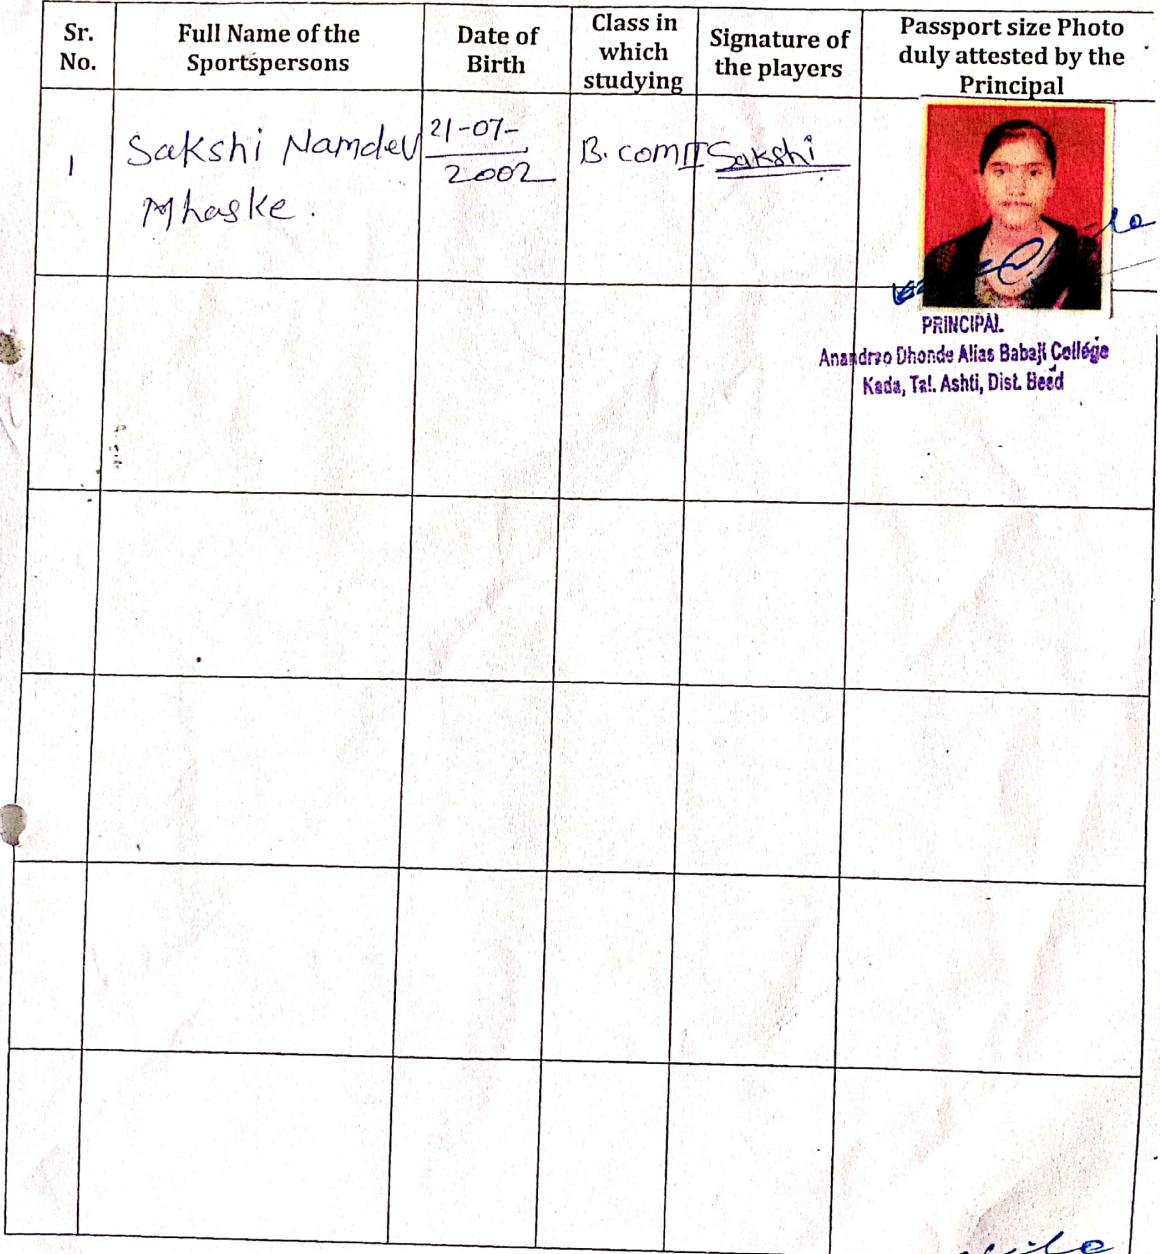 Sr. No.
Full Name of the Sportspersons
Date of Birth
Class in which studying
Signature of the players
Passport size Photo duly attested by the Principal
1
Sakshi Namdev
Mhaske.
21-07-
2002
B. com II
Sakshi
PRINCIPAL
Anandrao Dhonde Alias Babaji College
Kada, Tal. Ashti, Dist. Beed